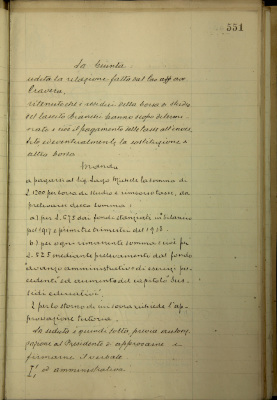 551
La Giunta
udita la relazione fatta dal Cav. avv.
ritenuto che i residui della borsa di studio
del lascito Bianchi hanno scopo determi
nato e cioè il pagamento delle tasse all'Univer
sità ed eventualmente la sostituzione
altra borsa
Manda
a pagarsi al Sig. Michele la somma di
L. 1200 per borsa di studio e rimborso tasse, da
prelevarsi detta somma:
a) per L. 675 dai fondi stanziati in bilancio
pel 1917 e primo trimestre del 1918.
b) per ogni rimanente somma: cioè per
L. 525 mediante prelevamento dal fondo
avanzo amministrativo di esercizi pre
cedenti ed aumento del capitolo Sus
sidi educativi.
E per lo storno di cui sovra richiede l'ap
provazione tutoria.
La seduta è quindi tolta, previa autoriz
zazione al Presidente di approvarne e
firmarne il verbale.